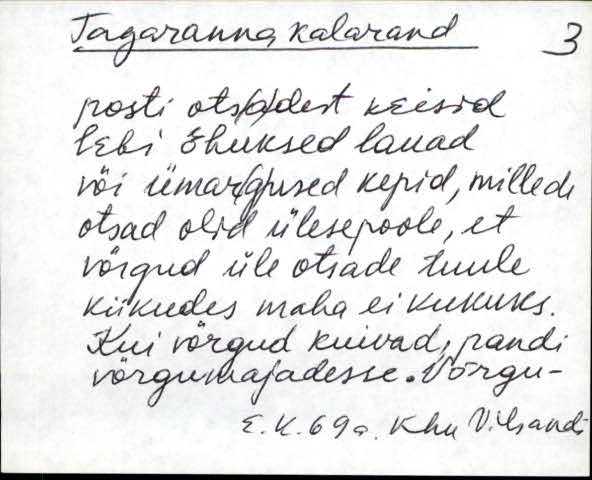 Tagaranna kalarand 3
posti ots/a/dest keisid
lebi õhuksed lauad
või ümar/g/used kepid, millede
otsad olid ülesepoole, et
võrgud üle otsade tuule
kiikudes maha ei kukuks.
Kui võrgud kuivad, pandi
võrgumajadesse. Võrgu-
E.K. 69a. Khu Vilsandi